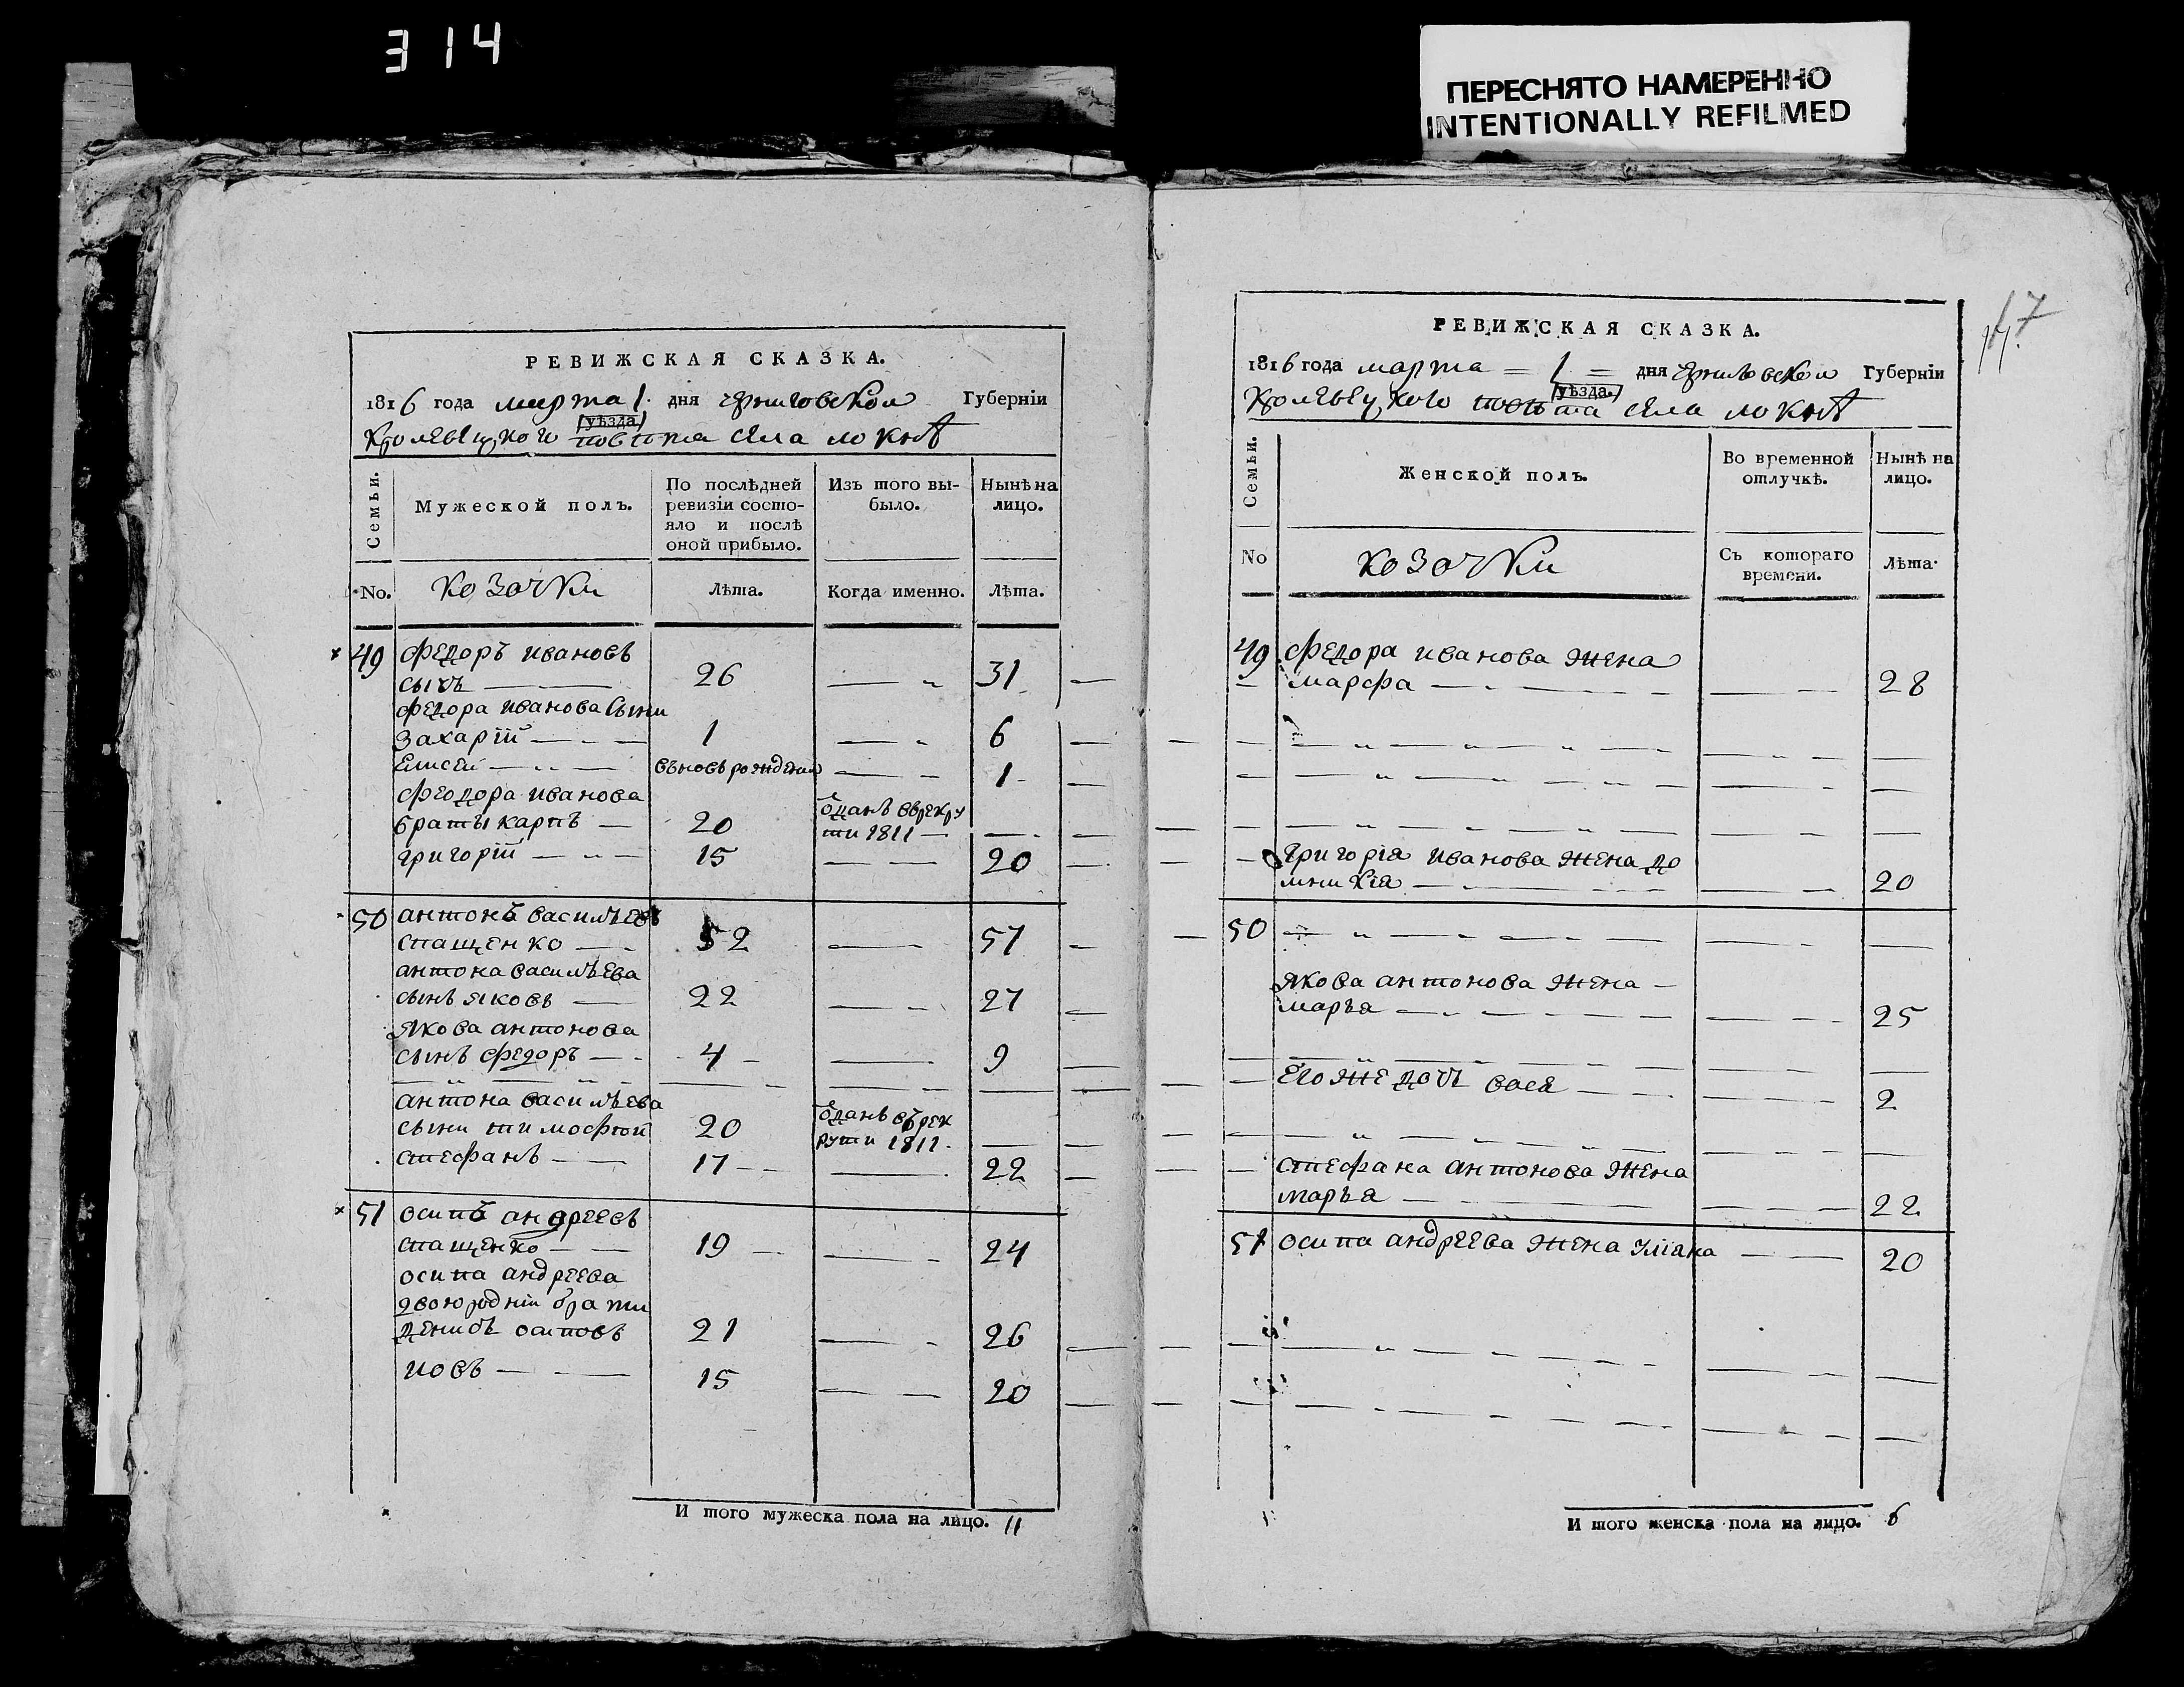 314
ПЕРЕСНЯТО НАМЕРЕННО
INTENTIONALLY REFILMED
РЕВИЖСКАЯ СКАЗКА.
1816 года марта 1. дня черниговской Губерніи
уѣзда
Кролевецкого повѣта села локнѣ
Семьи.
Мужеской полъ.
По послѣдней ревизіи состояло и послѣ оной прибыло.
Изъ того выбыло.
Нынѣ на лицо.
No.
козачки
Лѣта.
Когда именно.
Лѣта.
49 Федоръ ивановъ
сычъ 26 31
федора иванова сыни
Захарій 1 6
Елисей въновъ рожденій 1
феодора иванова
браты карпъ 20 ѿданъ врекру
ти 1811
григорій 15 20
50 антонъ василъевъ
спащенко 52 57
антона василъева
сынъ яковъ 22 27
Якова антонова
сынъ федоръ 4 9
антона василъева
сыни тимофей 20 ѿданъ врек
рути 1811
стефанъ 17 22
51 осипъ андреевъ
спащенко 19 24
осипа андреева
двоюродніи брати
денисъ осиповъ 21 26
иовъ 15 20
И того мужеска пола на лицо. 11
47
РЕВИЖСКАЯ СКАЗКА.
1816 года марта 1 дня чрниговской Губерніи
уѣзда.
Кролевецкого повѣта села локнѣ
Семьи.
Женской полъ.
Во временной отлучкѣ.
Нынѣ на лицо.
No
козачки
Съ котораго времени.
Лѣта.
49 федора иванова жена
марфа 28
григорія иванова жена до
мникія 20
50
якова антонова жена
маръя 25
Его же дочъ вася 2
стефана антонова жена
маръя 22
51 осипа андреева жена уліана 20
И того женска пола на лицо. 6